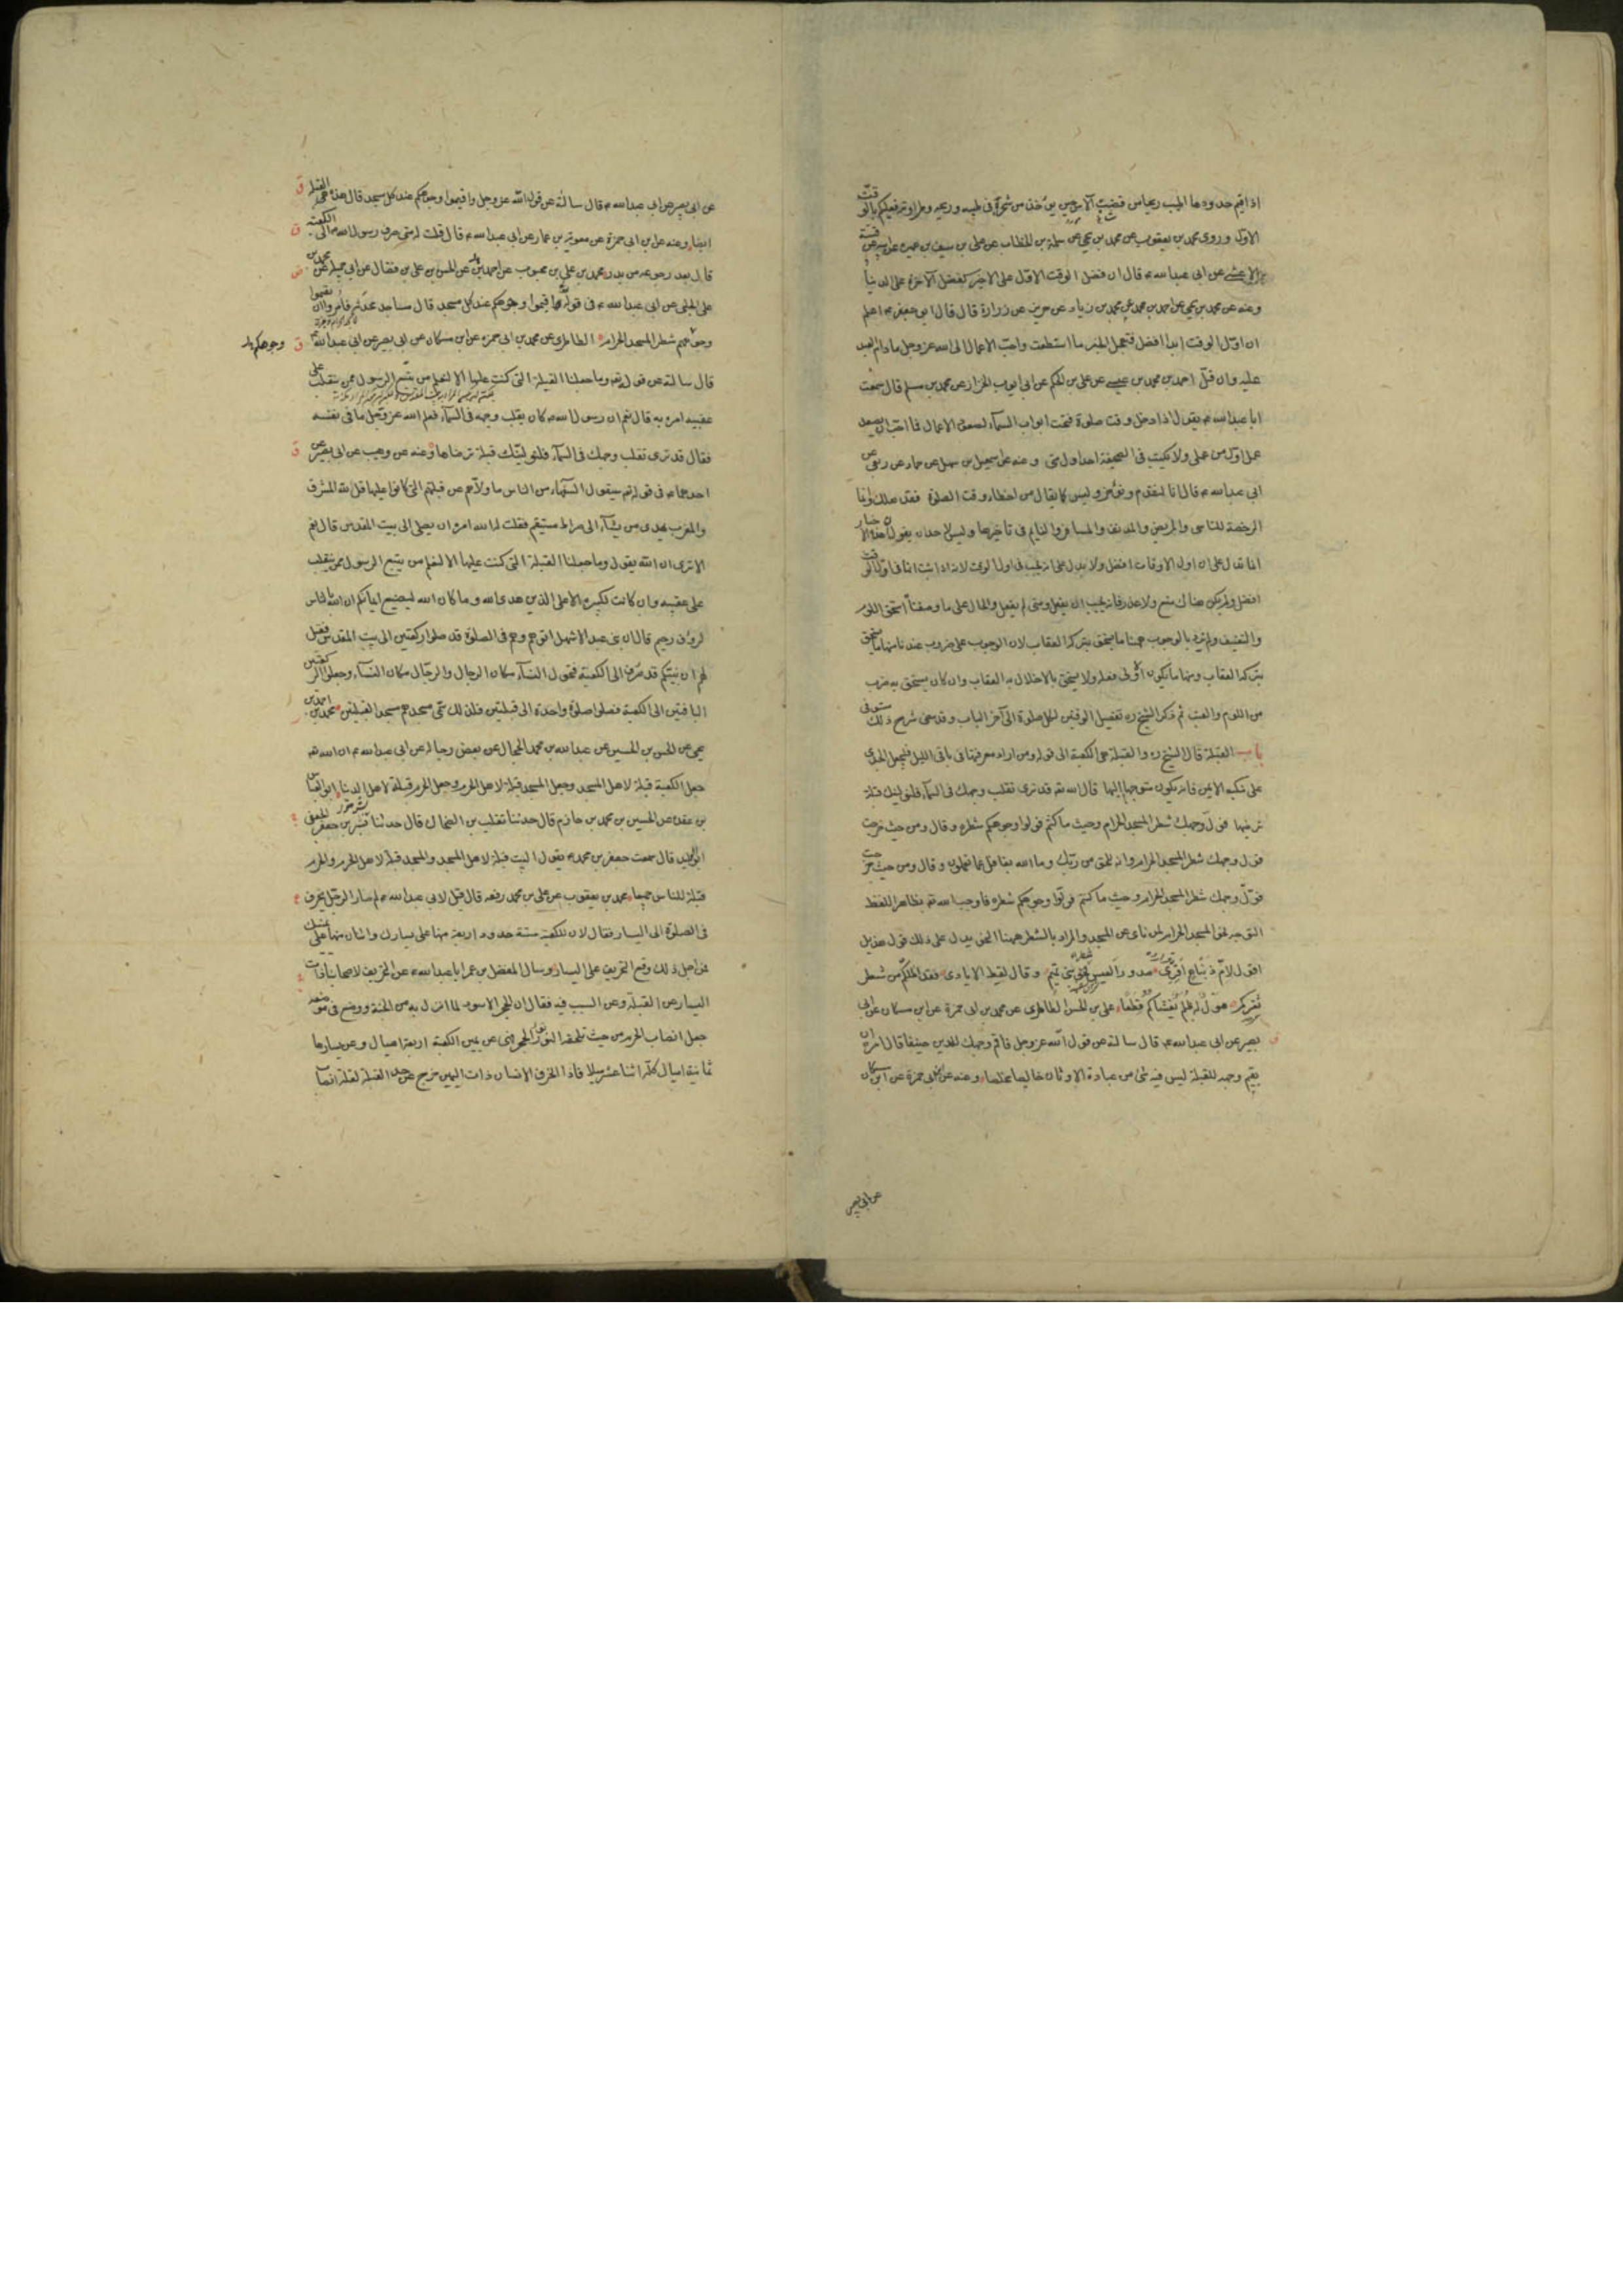 اذا اقيم حدودها اطيب ريحا من قضيب الآس حين يؤخذ من شجره في طيبه وريحه وطراوته فعليكم بالوقت
الاول وروى محمد بن يعقوب عن محمد بن يحيى عن سلمة بن الخطاب عن علي بن سيف بن عميرة عن ابيه عن قتيبة
الاعشى عن ابى عبد الله ع قال ان فضل الوقت الاول على الاخير كفضل الآخرة على الدنيا
وعنه عن محمد بن يحيى عن احمد بن محمد عن محمد بن زياد عن حريز عن زرارة قال قال ابو جعفر ع اعلم
ان اول الوقت ابدا افضل فتعجل الخير ما استطعت واحب الاعمال الى الله عز وجل ما دام العبد
عليه وان قل احمد بن محمد بن عيسى عن علي بن الحكم عن ابى ايوب الخزاز عن محمد بن مسلم قال سمعت
ابا عبد الله ع يقول اذا دخل وقت صلوة فتحت ابواب السمآء لصعود الاعمال فما احب ان يصعد
عمل اول من عملى ولا يكتب فى الصحيفة احد اول منى وعنه عن اسمعيل بن سهل عن حماد عن ربعى عن
ابى عبد الله ع قال انا لنقدم ونؤخر وليس كما يقال من اخطاء وقت الصلوة فقد هلك وانما
الرخصة للناسى والمريض والمدنف والمسافر والنايم فى تاخيرها وليس لاحد ان يقول هذه الاخبار
انما تدل على ان اول الاوقات افضل ولا يدل على انه يجب فى اول الوقت لانه اذا ثبت انها فى اول الوقت
افضل ولم يكن هناك منع ولا عذر فانه يجب ان يفعل ومتى لم يفعل والحال على ما وصفناه استحق اللوم
والتعنيف ولم نرد بالوجوب ههنا ما يستحق بتركه العقاب لان الوجوب على ضروب عندنا منها ما يستحق
بتركه العقاب ومنها ما يكون الاولى فعله ولا يستحق بالاخلال به العقاب وان كان يستحق به ضرب
من اللوم والعتب ثم ذكر الشيخ ره تفصيل الوقتين لكل صلوة الى آخر الباب وقد مضى شرح ذلك مستوفى
باب القبلة قال الشيخ ره والقبلة هى الكعبة الى قوله ومن اراد معرفتها فى باقى الليل فليجعل الجدى
على منكبه الايمن فانه يكون متوجها اليها قال الله تع قد نرى تقلب وجهك فى السمآء فلنولينك قبلة
ترضيها فول وجهك شطر المسجد الحرام وحيث ما كنتم فولوا وجوهكم شطره وقال ومن حيث خرجت
فول وجهك شطر المسجد الحرام وانه للحق من ربك وما الله بغافل عما تعملون وقال ومن حيث خرجت
فول وجهك شطر المسجد الحرام وحيث ما كنتم فولوا وجوهكم شطره فاوجب الله تع بظاهر اللفظ
التوجه نحو المسجد الحرام لمن نأى عن المسجد والمراد بالشطر ههنا النحو يدل على ذلك قول هذيل
اقول لام زنباع اقيمى صدور العيس نحو بنى تميم وقال لقيط الايادى فقد اظلكم من شطر
ثغركم هول له ظلم تغشاكم قطعا علي بن الحسن الطاطرى عن محمد بن ابى حمزة عن ابن مسكان عن ابى
بصير عن ابى عبد الله ع قال سالته عن قول الله عز وجل فاقم وجهك للدين حنيفا قال امره ان
يقيم وجهه للقبلة ليس فيه شئ من عبادة الاوثان خالصا مخلصا وعنه عن ابن ابى حمزة عن ابن مسكان
عن ابى بصير
عن ابى بصير عن ابى عبد الله ع قال سالته عن قول الله عز وجل واقيموا وجوهكم عند كل مسجد قال هذه القبلة
ايضا وعنه عن ابن ابى حمزة عن معوية بن عمار عن ابى عبد الله ع قال قلت له متى صرف رسول الله ص الى الكعبة
قال بعد رجوعه من بدر محمد بن علي بن محبوب عن احمد بن عن الحسن بن علي بن فضال عن ابى جميلة عن محمد بن
علي الحلبى عن ابى عبد الله ع فى قوله تع واقيموا وجوهكم عند كل مسجد قال مساجد محدثة فامروا ان يقيموا
وجوههم شطر المسجد الحرام الطاطرى عن محمد بن ابى حمزه عن ابن مسكان عن ابى بصير عن ابى عبد الله ع
وجوهكم بدر
قال سالته عن قول الله تع وما جعلنا القبلة التى كنت عليها الا لنعلم من يتبع الرسول ممن ينقلب على
عقبيه امره به قال نعم ان رسول الله ص كان يقلب وجهه فى السمآء فعلم الله عز وجل ما فى نفسه
فقال قد نرى تقلب وجهك فى السمآء فلنولينك قبلة ترضاها وعنه عن وهيب عن ابى بصير عن
احدهما ع فى قوله تع سيقول السفهآء من الناس ما ولاهم عن قبلتهم التى كانوا عليها قل لله المشرق
والمغرب يهدى من يشآء الى صراط مستقيم فقلت له الله امره ان يصلى الى بيت المقدس قال نعم
الا ترى ان الله يقول وما جعلنا القبلة التى كنت عليها الا لنعلم من يتبع الرسول ممن ينقلب
على عقبيه وان كانت لكبيرة الا على الذين هدى الله وما كان الله ليضيع ايمانكم ان الله بالناس
لرؤف رحيم قال ان بنى عبد الاشهل اتوهم وهم فى الصلوة قد صلوا ركعتين الى بيت المقدس فقيل
لهم ان نبيكم قد صرف الى الكعبة فتحول النسآء مكان الرجال والرجال مكان النسآء وجعلوا الركعتين
الباقيتين الى الكعبة فصلوا صلوة واحدة الى قبلتين فلذلك سمى مسجدهم مسجد القبلتين محمد بن احمد بن
يحيى عن الحسن بن الحسين عن عبد الله بن محمد الحجال عن بعض رجاله عن ابى عبد الله ع ان الله تع
جعل الكعبة قبلة لاهل المسجد وجعل المسجد قبلة لاهل الحرم وجعل الحرم قبلة لاهل الدنيا ابو العباس
بن عقدة عن الحسين بن محمد بن حازم قال حدثنا تغلب بن الضحاك قال حدثنا بشر بن جعفر الجعفى
ابو الوليد قال سمعت جعفر بن محمد ع يقول البيت قبلة لاهل المسجد والمسجد قبلة لاهل الحرم والحرم
قبلة للناس جميعا محمد بن يعقوب عن علي بن محمد رفعه قال قيل لابى عبد الله ع لم صار الرجل ينحرف
فى الصلوة الى اليسار فقال لان للكعبة ستة حدود اربعة منها على يسارك واثنان منها على يمينك
فمن اجل ذلك وقع التحريف على اليسار وسال المفضل بن عمر ابا عبد الله ع عن التحريف لاصحابنا ذات
اليسار عن القبلة وعن السبب فيه فقال ان الحجر الاسود لما انزل به من الجنة ووضع فى موضعه
جعل انصاب الحرم من حيث تلحقه النور نور الحجر فهى عن يمين الكعبة اربعة اميال وعن يسارها
ثمانية اميال كله اثنا عشر ميلا فاذا انحرف الانسان ذات اليمين خرج عن حد القبلة لقلة انصاب